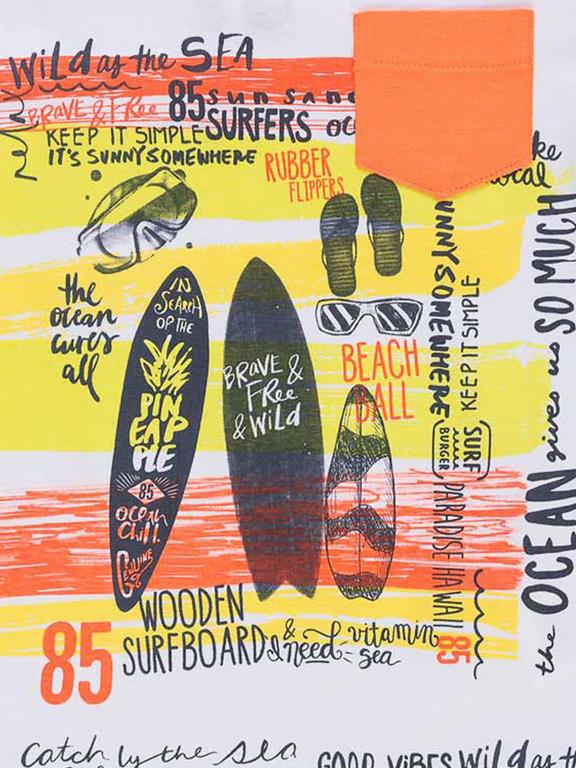 Wild as the SEA
BRAVE & FRee
85 sun sand
KEEP IT SIMPLE SURFERS
IT'S SUNNY SOMEWHERE
RUBBER
FLIPPERS
the
ocean
cures
all
IN
SEARCH
OF THE
PIN
EAP
PLE
85
ocean
chill
GENUINE
BRAVE &
FRee
& WiLd
BEACH
BALL
UNNY SOMEWHERE
KEEP IT SIMPLE
SURF
BURGER
PARADISE HAWAII
85
the OCEAN gives us SO MUCH
WOODEN
SURFBOARD
& I need vitamin
sea
85
Catch by the sea
GOOD ViBES Wild as th